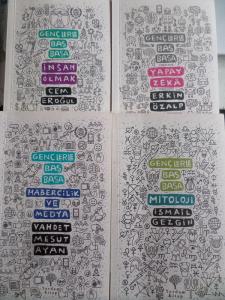 GENÇLERLE
BAŞ
BAŞA
İNSAN
OLMAK
CEM
EROĞUL
GENÇLERLE
BAŞ
BAŞA
YAPAY
ZEKÂ
ERKİN
ÖZALP
GENÇLERLE
BAŞ
BAŞA
HABERCİLİK
VE
MEDYA
VAHDET
MESUT
AYAN
GENÇLERLE
BAŞ
BAŞA
MİTOLOJİ
İSMAİL
GEZGİN